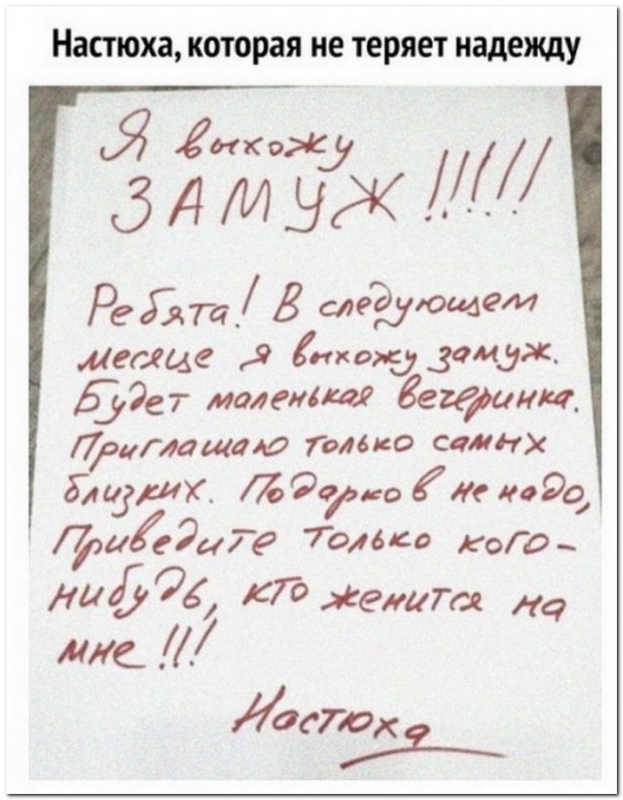 Настюха, которая не теряет надежду
Я выхожу
ЗАМУЖ!!!!!
Ребята! В следующем
месяце я выхожу замуж.
Будет маленькая вечеринка.
Приглашаю только самых
близких. Подарков не надо,
Приведите только кого-
нибудь, кто женится на
мне!!!
Настюха